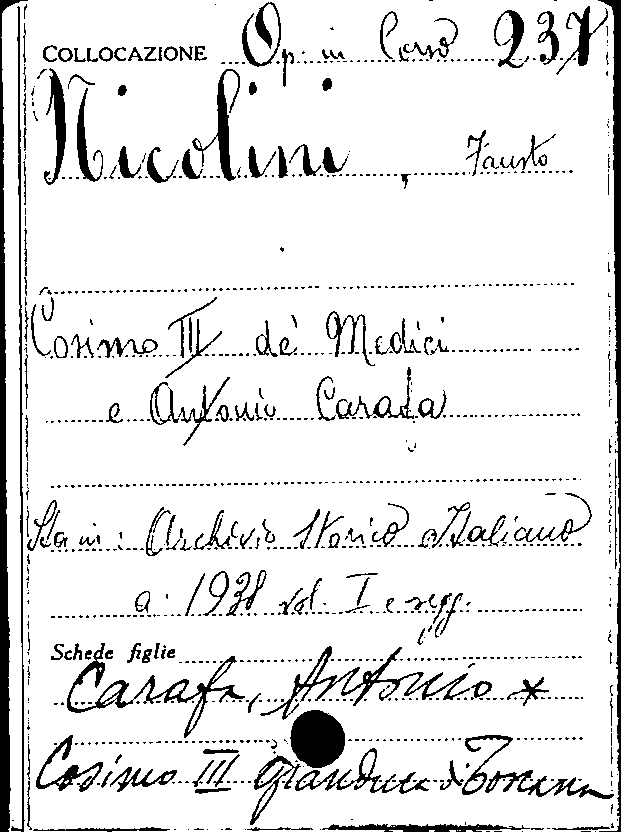 COLLOCAZIONE Op. in Corso 237
Nicolini, Fausto
Cosimo III de' Medici
e Antonio Carafa
Sta in: Archivio Storico Italiano
a. 1938 vol. I e segg.
Schede figlie
Carafa, Antonio *
Cosimo III granduca di Toscana